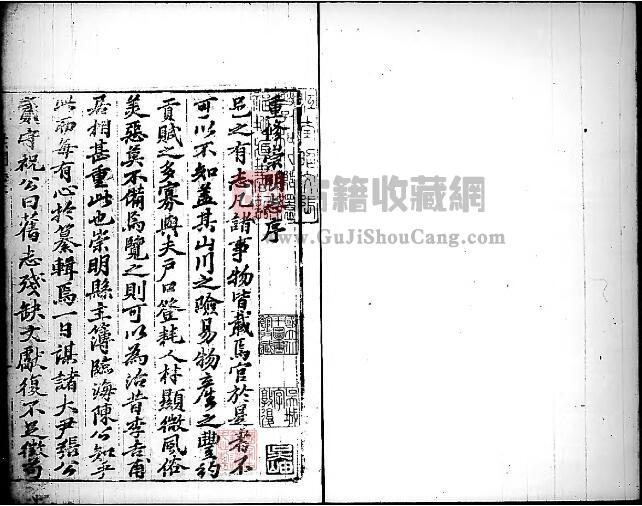 重修崇明志序
邑之有志凡諸事物皆載焉官於是者不
可以不知蓋其山川之險易物產之豐約
貢賦之多寡與夫戶口登耗人材顯微風俗
美惡莫不備焉覽之則可以為治昔李吉甫
居相甚重此也崇明縣主簿臨海陳公知乎
此而每有心於纂輯焉一日謀諸大尹張公
貳守祝公曰舊志殘缺文獻復不足徵苟
古籍收藏网
www.GuJiShouCang.com